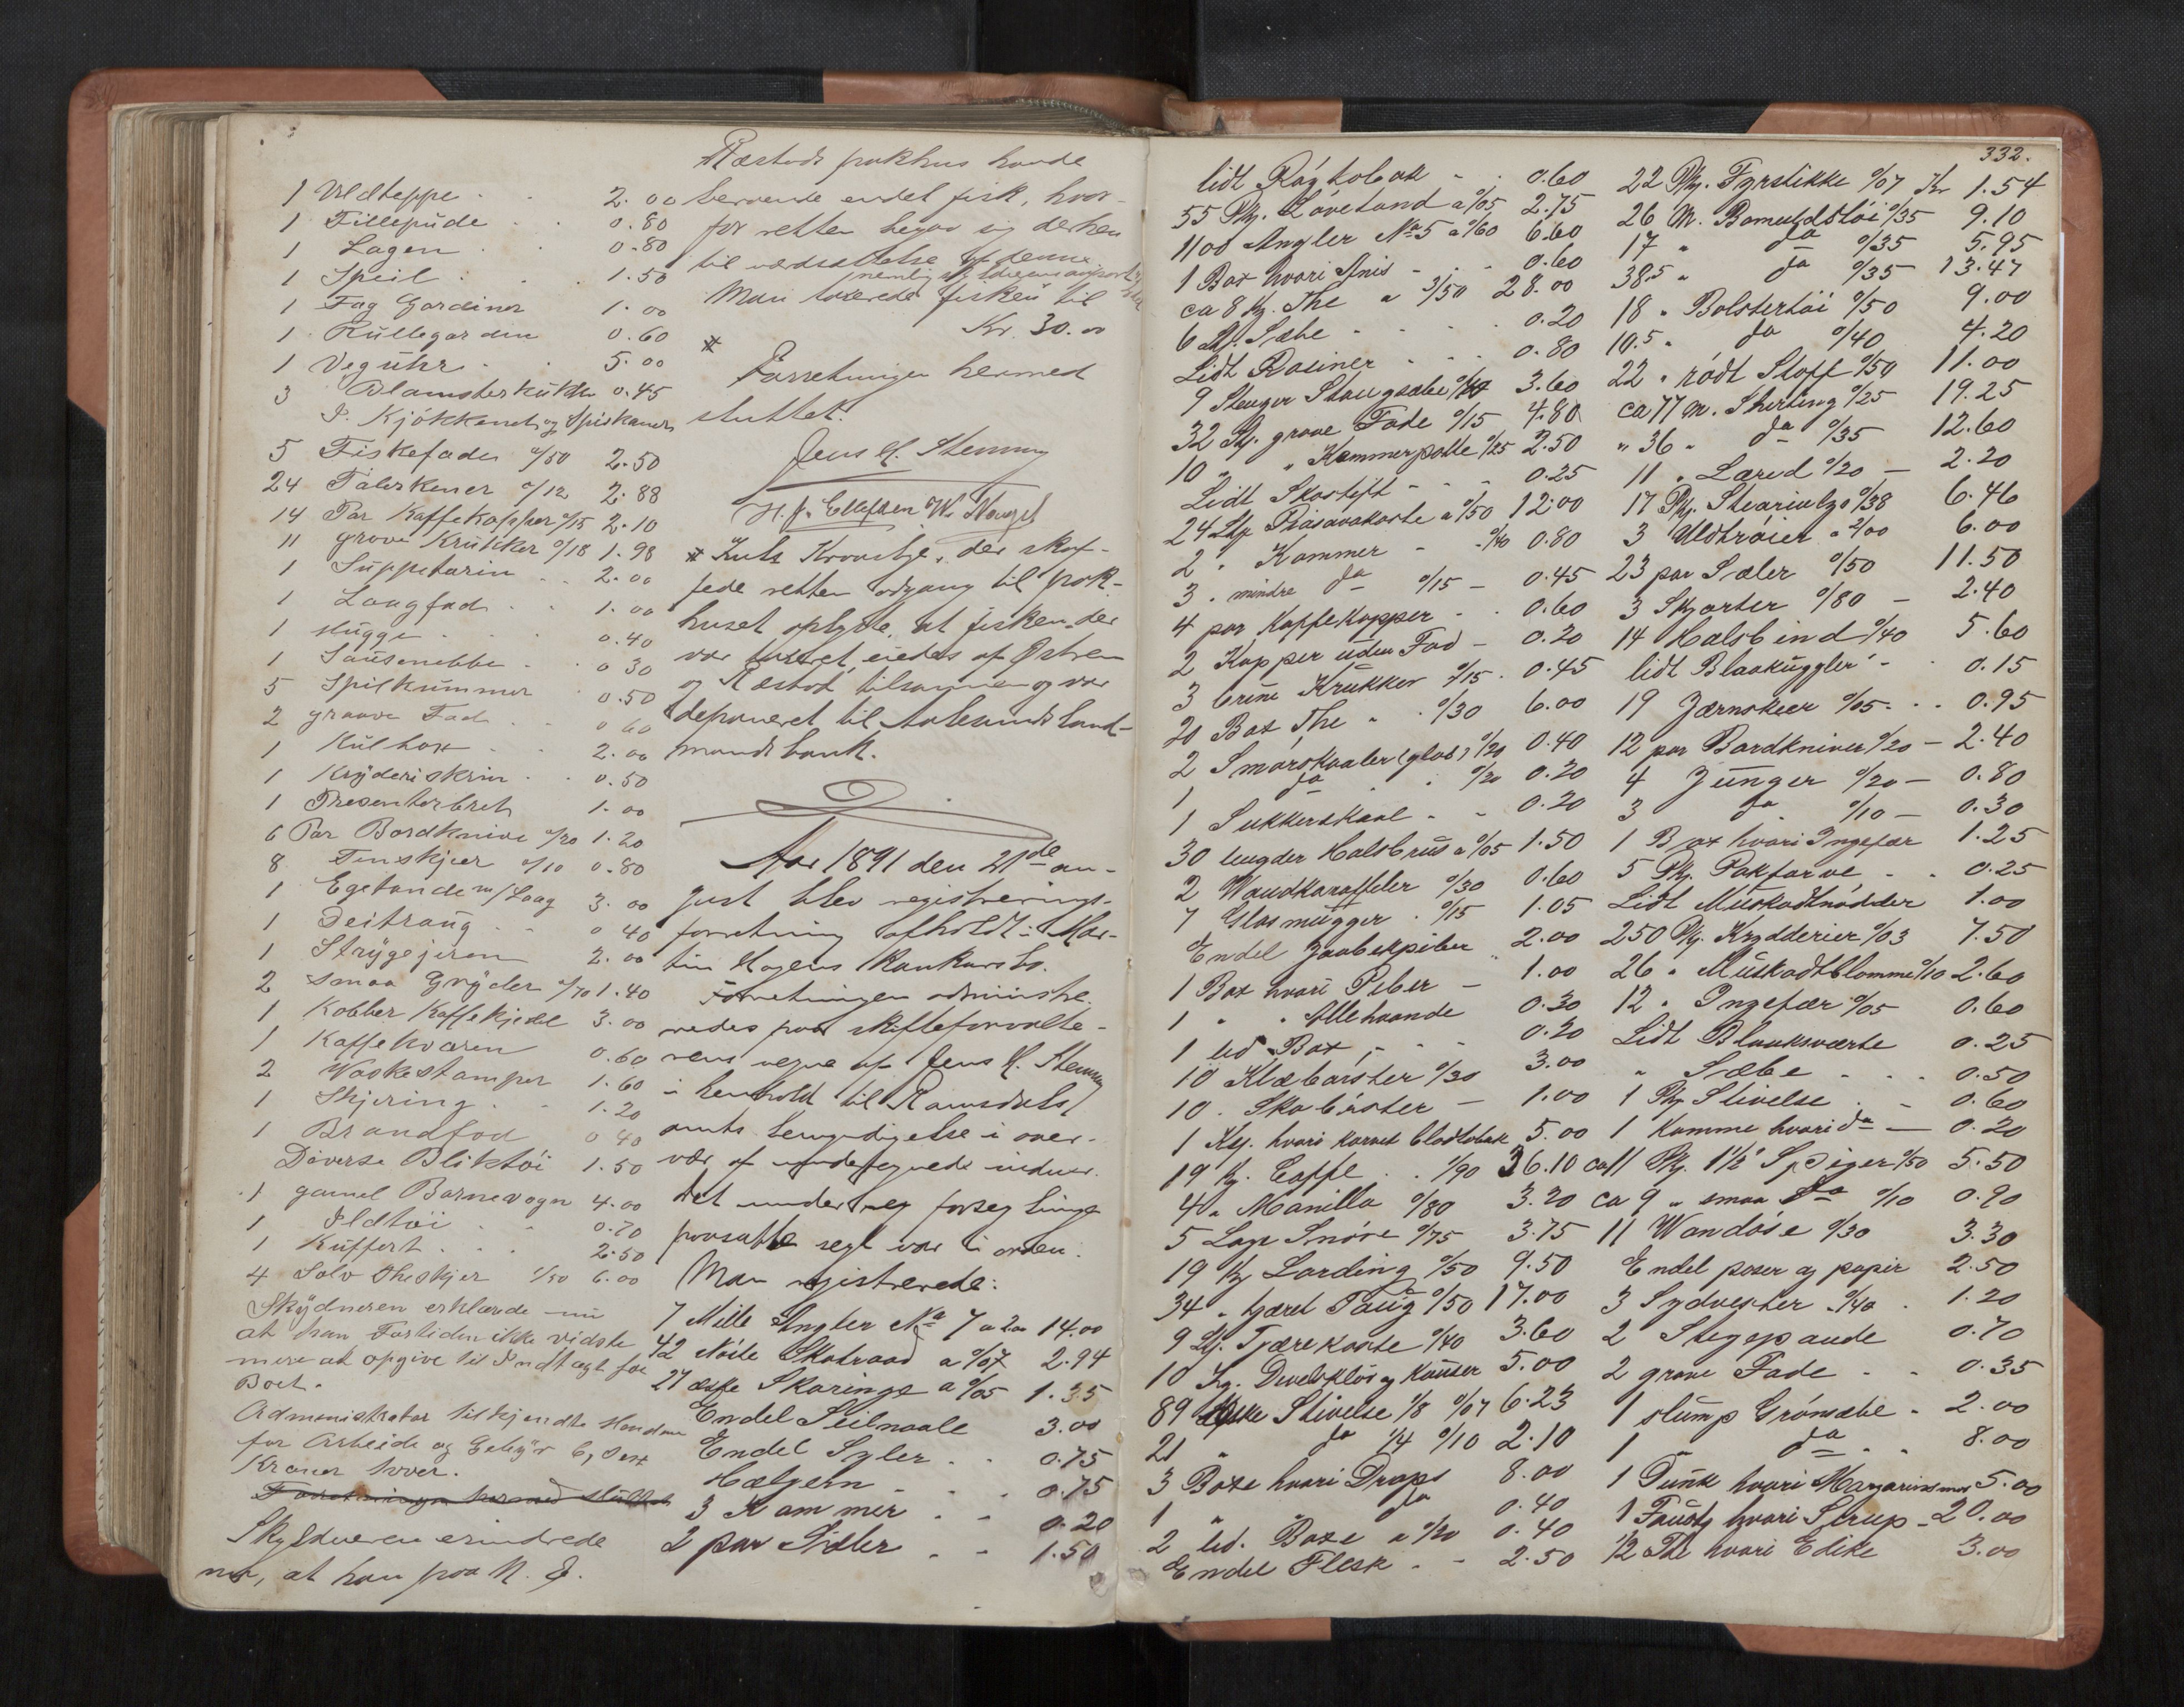 1 Uldteppe . 2.00
1 Fillepude . . 0.80
1 Lagen . . 0.80
1 Speil . . 1.50
1 Fag Gardiner 1.00
1 Rullegardin 0.60
1 Veguhr . . 5.00
3 Blomsterkukker 0.45
I. Kjøkkenet og Spiskamer
5 Fiskefade o/50 2.50
24 Talerkener o/12 2.88
14 Par Kaffekopper o/15 2.10
11 grove Krukker o/18 1.98
1 Suppeterin . . 2.00
1 Laagfad . . 1.00
1 Mugge . . . 0.40
1 Sausenebbe . . 0.30
5 Spilkummer 0.50
2 graave Fad . . 0.60
1 Kulbox . . 2.00
1 Kryderiskrin . . 0.50
1 Presenterbret 1.00
6 Par Bordknive o/20 1.20
8 Tinskjeer o/10 0.80
1 Egetønde m/Laag 3.00
1 Deitraug . . 0.40
1 Strygejern 2.00
2 smaa Gryder o/70 1.40
1 Kobber Kaffekjedel 3.00
1 Kaffekværn 0.60
2 Waskestamper 1.60
1 Skjering . . 1.20
1 Brandfod 0.40
Diverse Bliktøi 1.50
1 gamel Barnevogn 4.00
1 Ildtøi . . 0.70
1 Kuffert . . . 2.50
4 Sølv Theskjer 1/50 6.00
Skydneren erklærde nu
at han Fortiden ikke vidste
mere at opgive til Indtægt for
Boet.
Administrator tilkjendte
for Arbeide og Gebyr 6, Sex
Kroner hver.
Forretningen hermed sluttet
Skyldneren erindrede
nu, at han paa N. J.
Ræstads pakhus havde
beroende endel fisk, hvor-
for retten begav sig derhen
til værdsættelse af denne.
Man taxerede fisken til
Kr. 30.00
Forretningen hermed
sluttet.
Jens H. Stenning
H. J. Ellefsen
der skaf-
fede retten adgang til pak-
huset oplyste, at fisken der
var taxeret, eiedes af
og Ræstad tilsammen og var
deponeret til Aalesunds Land-
mandsbank.
Aar 1891 den 21de au-
gust blev registrerings-
forretning afholdt i Mar-
tin Hagens Konkursbo.
Forretningen administre-
redes paa skifteforvalte-
rens vegne af Jens H. Stenning
i henhold til Romsdals
amts bemyndigelse i over-
vær af undertegnede vidner.
Det under forsegling
paasatte segl var i orden.
Man registrerede:
7 Mille Angler No 7 a 2.00 14.00
42 Nøile Skotraad a o/07 2.94
27 æske Skoringe a o/05 1.35
Endel Seilnaale 3.00
Endel Syler . . 0.75
Hælgern . . . 0.75
3 Kammer . . 0.20
2 par Sæler . . 1.50
332.
lidt Røgtobak - . 0.60
55 Pk. Løvetand a o/05 2.75
1100 Angler No 5 a o/60 6.60
1 Box hvori Anis - . . 0.60
ca 8 kg. The a 3/50 28.00
6 St. Sæbe . . . . 0.20
Lidt Rosiner . . . 0.80
9 Stenger Stangsæbe o/40 3.60
32 St. grove Fade o/15 4.80
10 " " Kammerpotte o/25 2.50
Lidt Skostift - - - 0.25
24 Stk Piasavakoste a o/50 12.00
2 " Kammer - o/40 0.80
3 " mindre do o/15 - 0.45
4 par Kaffekopper - . 0.60
2 Kopper uden Fad - 0.20
3 brune Krukker o/15 . 0.45
20 Box The " . o/30 6.00
2 Smørskaaler (glas) o/20 0.40
1 do . . o/20 0.20
1 Sukkerskaal . - 0.20
30 lengder Halsbrus a o/05 1.50
2 Wandkarafeler o/30 0.60
7 Glasmugger . o/15 1.05
Endel Jaabekpiber " 2.00
1 Box hvori Peber - 1.00
1 " " Allehaande 0.30
1 lid. Box , - . . 0.20
10 Klæbørster o/30 3.00
10 . Skobørster - 1.00
1 Kg. hvori karvet bladtobak 5.00
19 kg. Caffe . . 1/90 36.10
4 " Manilla o/80 3.20
5 Lage Snøre o/75 3.75
19 kg Lording o/50 9.50
34 " tjæret Taug o/50 17.00
9 St. Tjærekoste o/40 3.60
10 kg. Duvelskløs og Kauser 5.00
89 Æske Stivelse 1/8 o/07 6.23
21 " do 1/4 o/10 2.10
3 Boxe hvori Drops 8.00
1 " do 0.40
2 lid. Boxe a o/20 0.40
Endel Flesk . - 2.50
22 Pk. Fyrstikke o/07 Kr 1.54
26 M. Bomuldstøi o/35 9.10
17 " do o/35 5.95
38.5 " do o/35 13.47
18 " Bolstertøi o/50 9.00
10.5 " do o/40 4.20
22 " rødt Stoff o/50 11.00
ca 77 M. Sherting o/25 19.25
" 36 " do o/35 12.60
11 " Lærred o/20 - 2.20
17 Pk. Stearinlys o/38 6.46
3 Uldtrøier a 2/00 6.00
23 par Sæler o/50 11.50
3 Skjorter o/80 - 2.40
14 Halsbind o/40 5.60
lidt Blaakuggler - . 0.15
19 Jærnskeer o/05 . . . 0.95
12 par Bordkniver o/20 - 2.40
4 Junger o/20 - 0.80
3 do . o/10 - 0.30
1 Box hvori Ingefær 1.25
5 Pk. Pakfarve . . 0.25
Lidt Muskadtnødder 1.00
250 Pk. Krydderier o/03 7.50
26 " Muskadtblomme o/10 2.60
12 " Ingefær o/05 0.60
Lidt Blanksværte 0.25
" Sæbe . . . 0.50
1 Pk Stivelse . - 0.60
1 Kumme hvori do - 0.20
ca 11 Pk. 1½" Spiger o/50 5.50
ca 9 " smaa do o/10 0.90
11 Wandøse o/30 3.30
Endel poser og papir 2.50
3 Sydvester o/40 . 1.20
2 Stegepande 0.70
2 grove Fade . . 0.35
1 slump Grønsæbe . 2.00
1 " do . . 8.00
1 Dunk hvori Margarinsmør 5.00
1 Fustg hvori Sirup - 20.00
1/2 Td hvori Edike 3.00